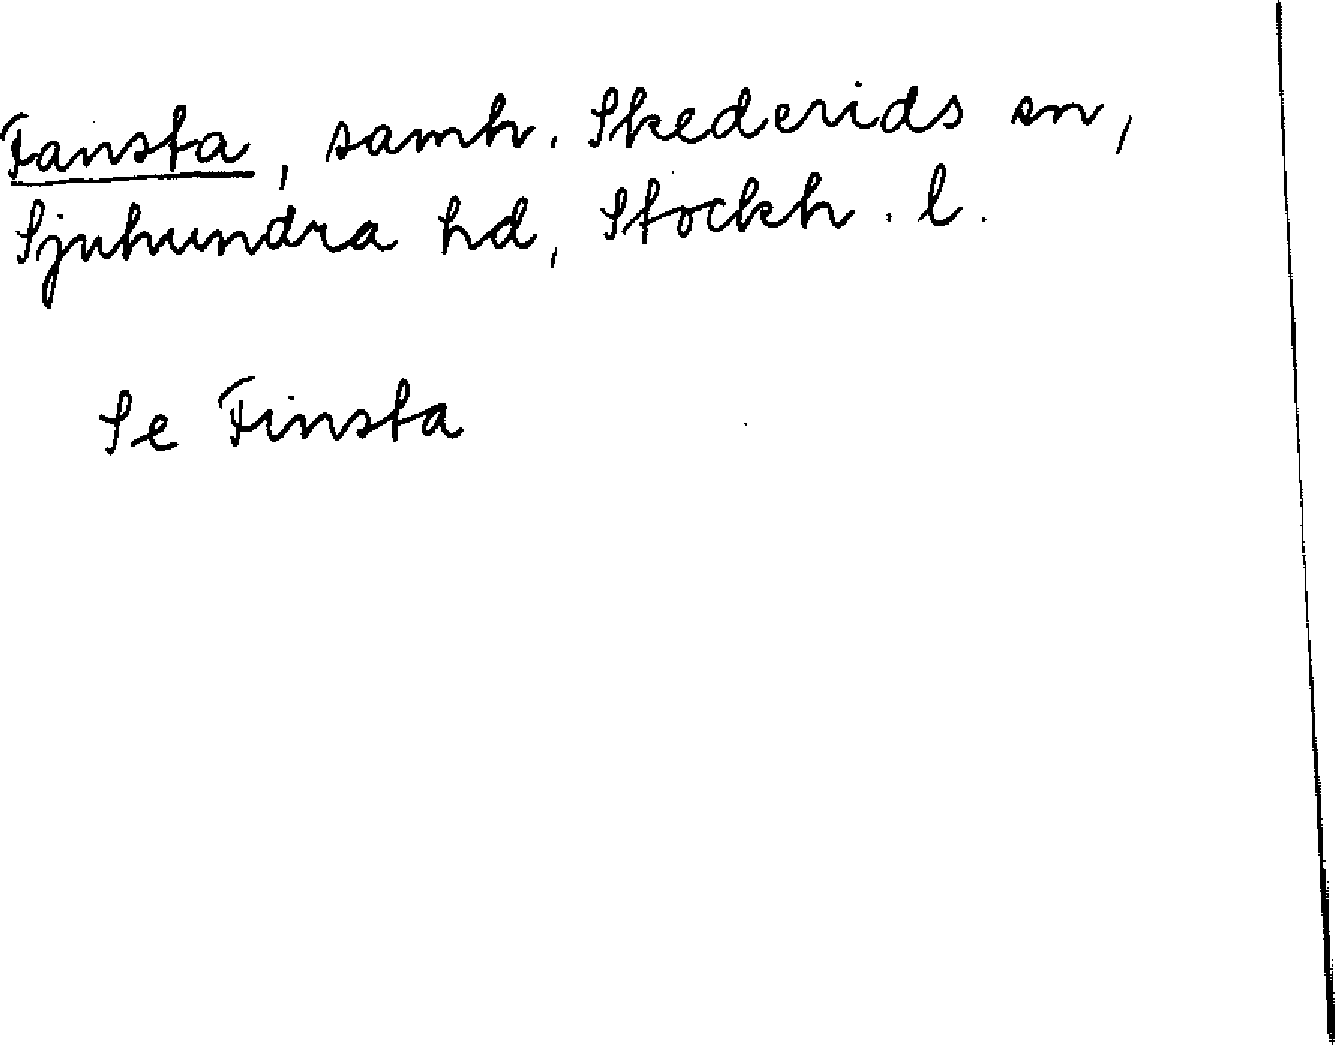 Fansta, samh. Skederids sn,
Sjuhundra hd, Stockh. l.
Se Finsta